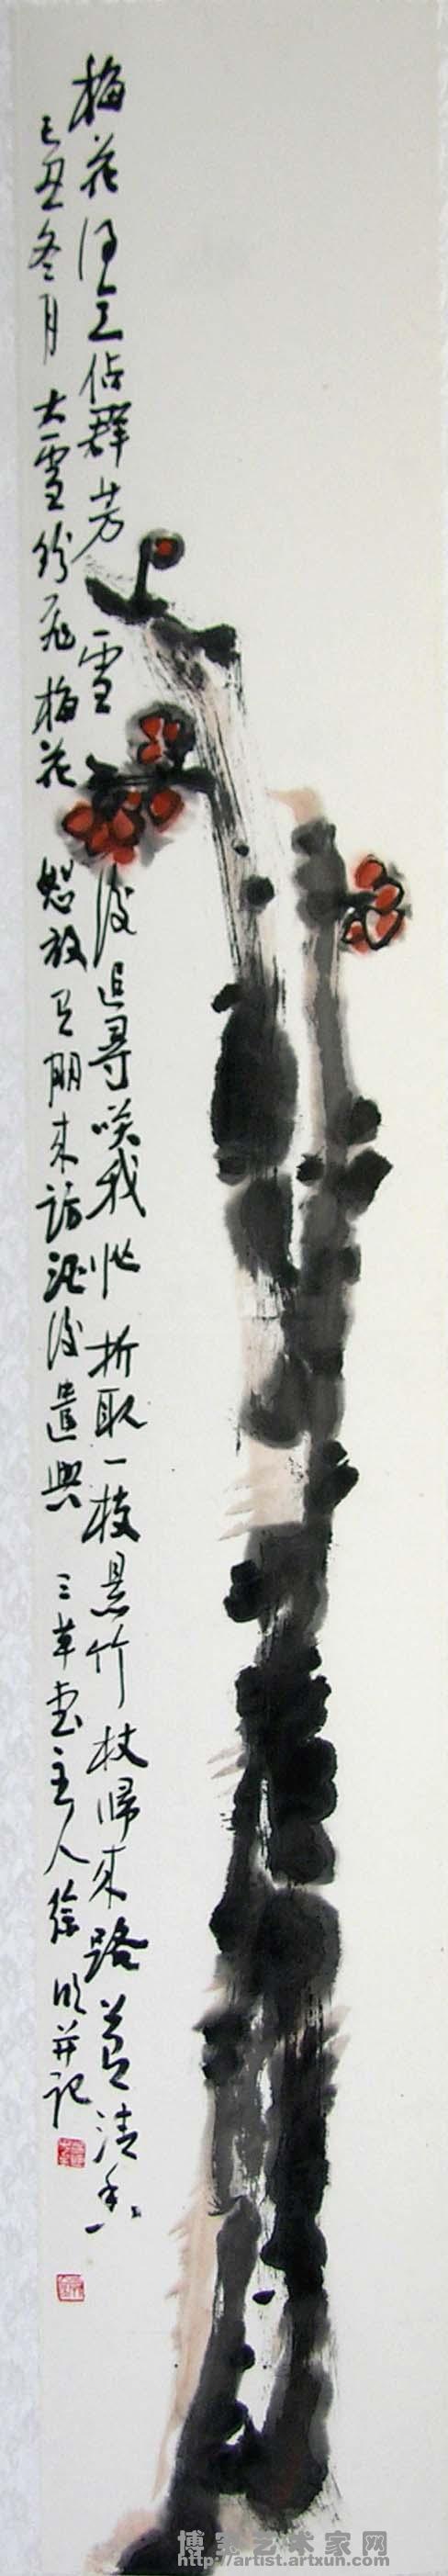 梅花得意佔群芳雪後追尋笑我忙折取一枝悬竹杖歸來路上清香
己丑冬月大雪纷飛梅花怒放有朋来访酒後遣興三草堂主人徐 并记
博宝艺术家网
http://artist.artxun.com